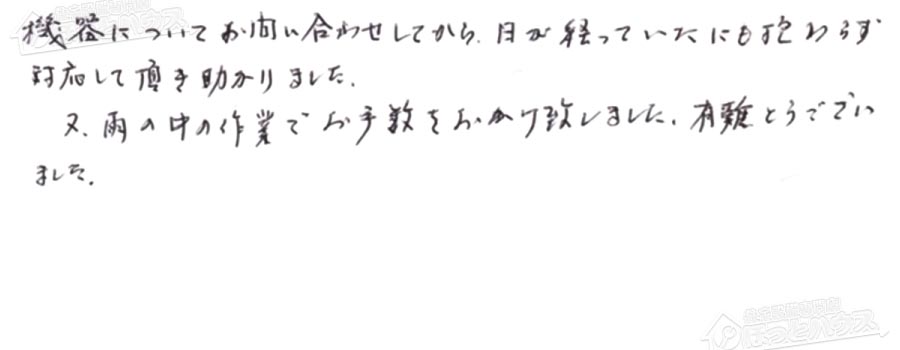 機器についてお問い合わせしてから、日が経っていたにも拘わらず
対応して頂き助かりました。
又、雨の中の作業でお手数をおかけ致しました。有難とうございました。
住宅設備専門店
ほっとハウス